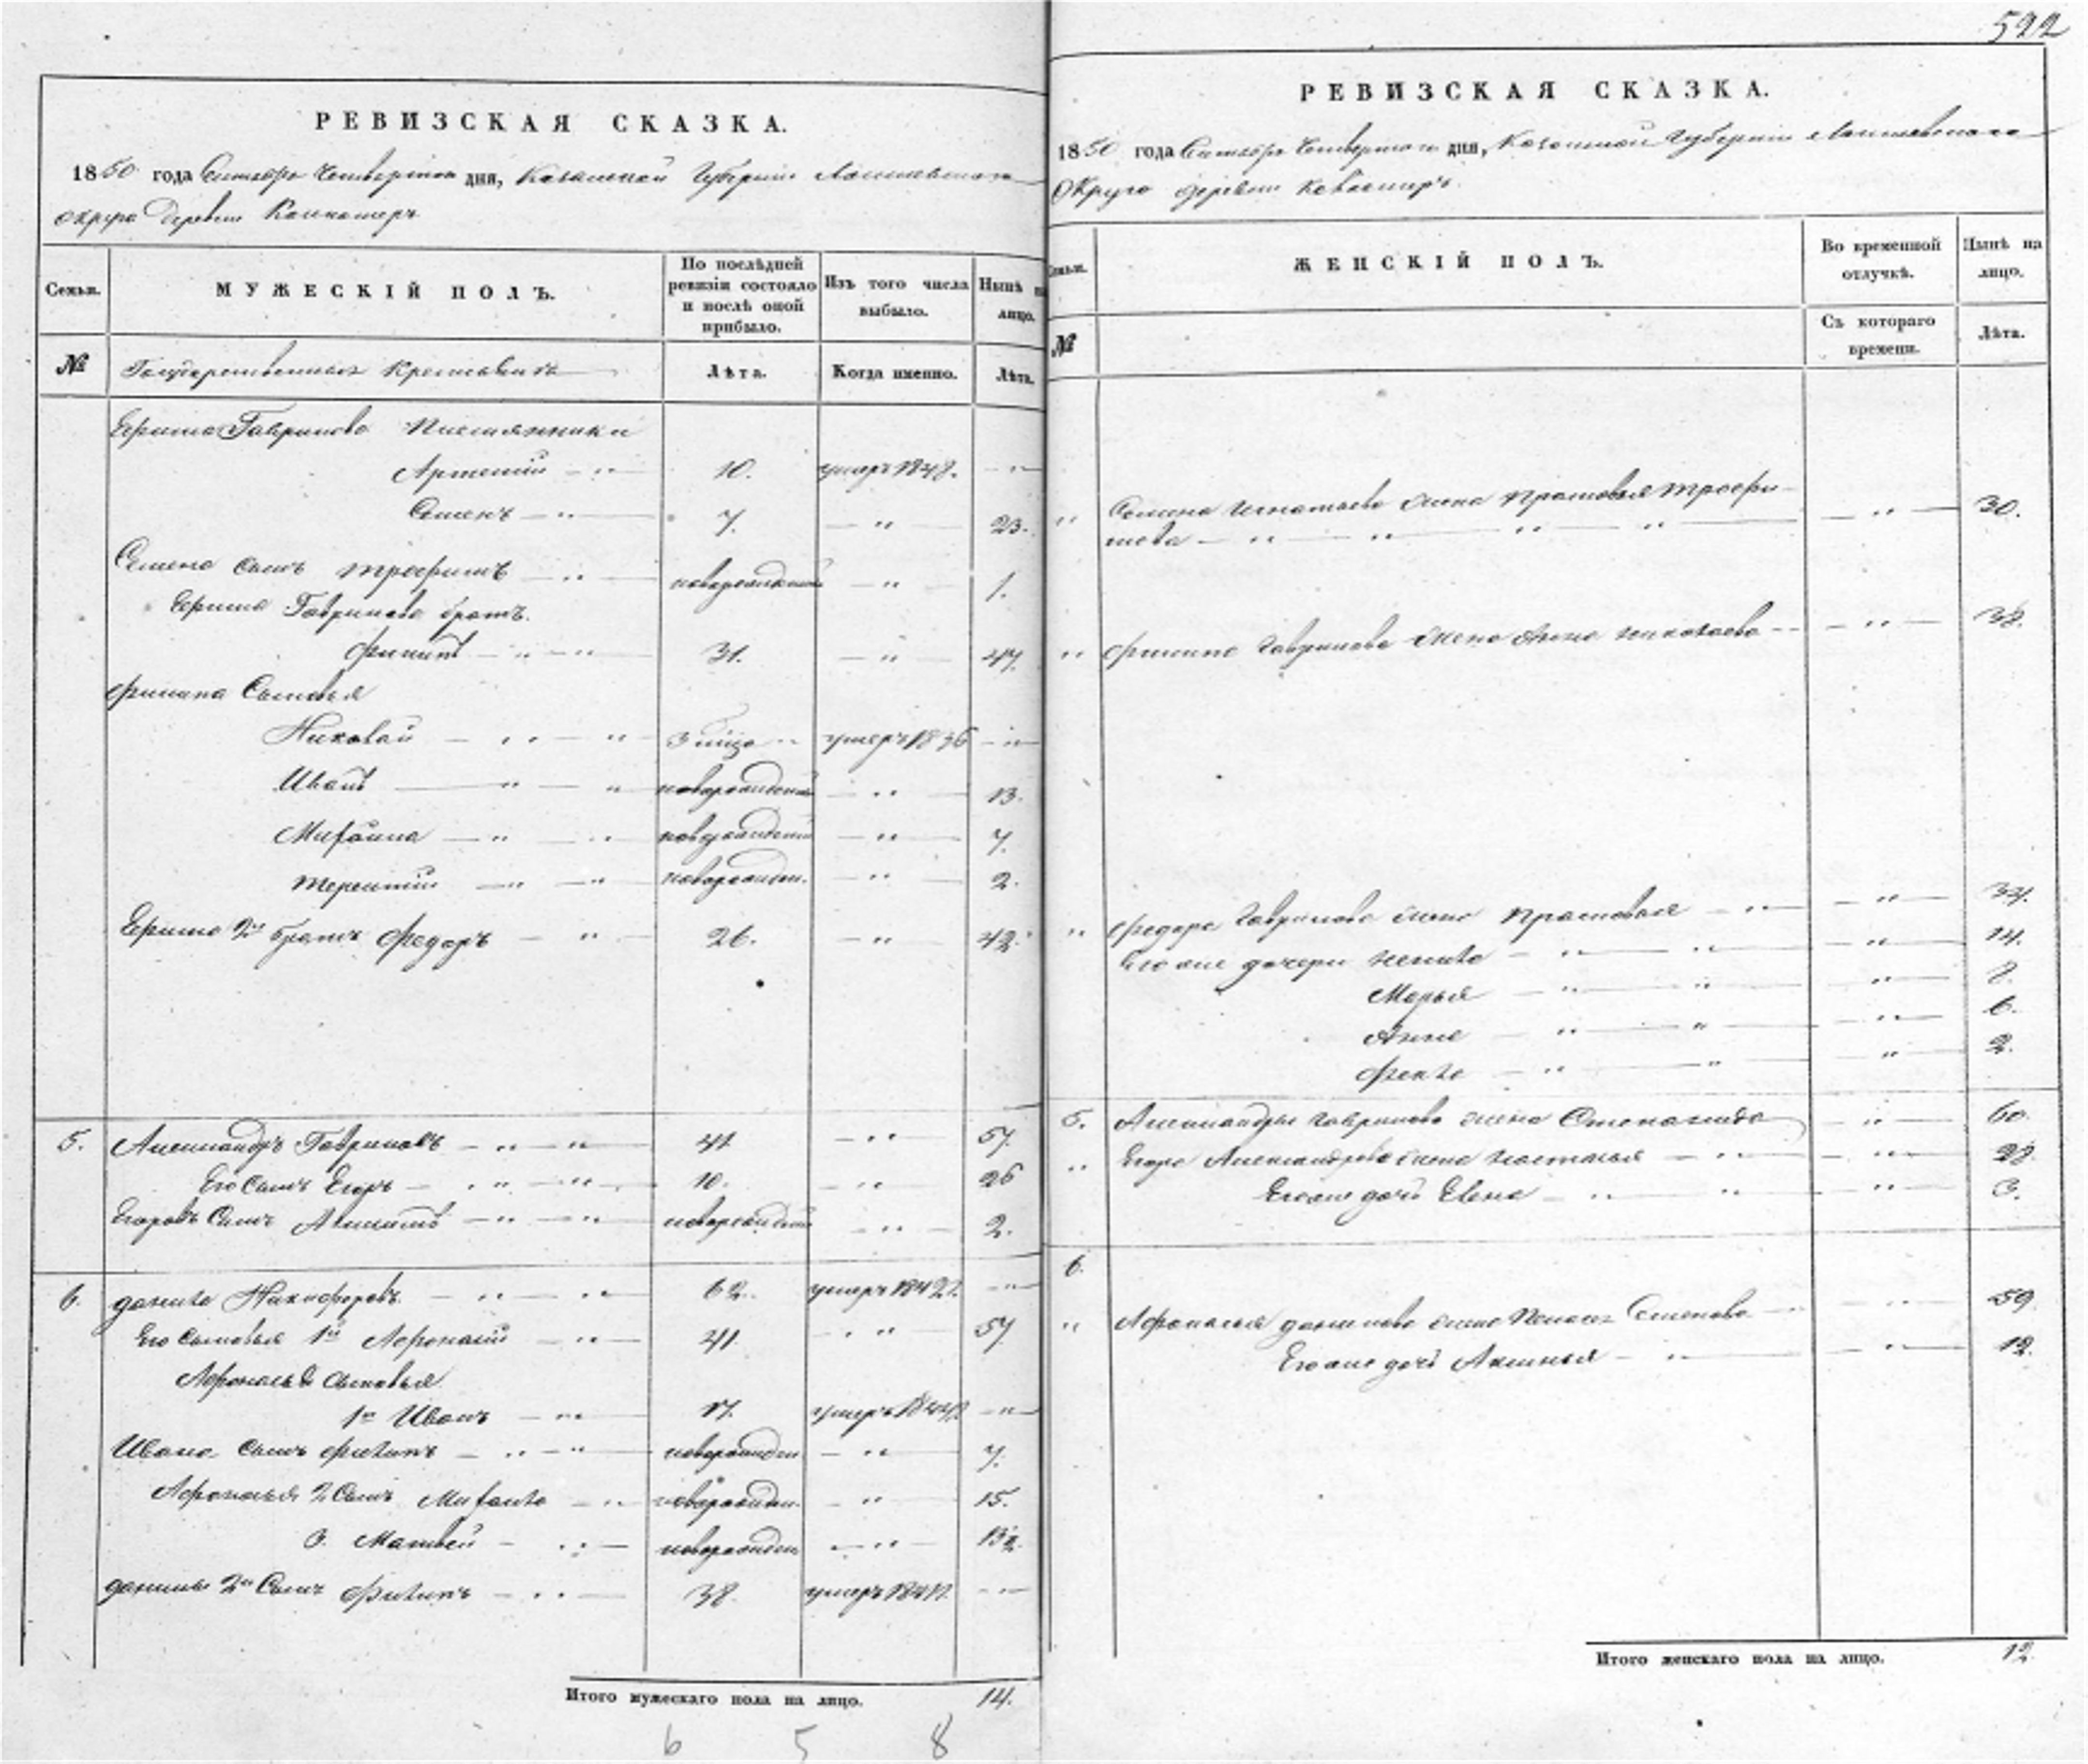 522
РЕВИЗСКАЯ СКАЗКА.
1850 года Сентября Четвертого дня, Казанской Губернии Лаишевского
округа деревни
Семьи. МУЖЕСКІЙ ПОЛЪ. По послѣдней ревизіи состояло и послѣ оной прибыло. Изъ того числа выбыло. Нынѣ на лицо.
№ Государственных Крестьянъ Лѣта. Когда именно. Лѣта.
Ефима Гаврилова Племянники
Артемій — " — 10. умеръ 1848. — " —
Семенъ — " — 7. — " — 23.
Семена сынъ Трофимъ — " — новорожденный — " — 1.
Ефима Гаврилова братъ
Филипъ — " — " — 31. — " — 47.
Филипа Сыновья
Николай — " — " умеръ 1836 — " —
Иванъ — " — " новорожденный — " — 13.
Михайла — " — " новорожденный — " — 7.
Терентій — " — " новорожден. — " — 2.
Ефима 2й братъ Федоръ — " — 26. — " — 42.
5. Александръ Гавриловъ — " — " 41 — " — 57.
Его Сынъ Егоръ — " — " — 10. — " — 26
Егоровъ Сынъ — " — " новорожденный — " — 2.
6. Данила Никифоровъ — " — " 62. умеръ 1842 — " —
Его сыновья 1й Афонасій — " — 41. — " — 57
Афонасья сыновья
1й Иванъ — " — 17. умеръ — " —
Ивана сынъ Филипъ — " — " новорожден. — " — 7.
Афонасья 2 Сынъ Михайла — " новорожден. — " — 15.
3. Матвей — " — новорожден — " —
Данилы 2й Сынъ Филипъ — " — 38. умеръ — " —
Итого мужескаго пола на лицо. 14.
6 5 8
РЕВИЗСКАЯ СКАЗКА.
1850 года Сентября Четвертого дня, Казанской Губерніи Лаишевского
Округа деревни
Семьи. ЖЕНСКІЙ ПОЛЪ. Во временной отлучкѣ. Нынѣ на лицо.
№ Съ котораго времени. Лѣта.
" Семена Игнатьева жена Прасковья Трофи-
мова — " — " — " — " — — " — 30.
" Филипа Гаврилова жена Анна Николаева — — " — 38.
" Федора Гаврилова жена Прасковья — " — — " — 34.
Его же дочери — " — " — " — 14.
Марья — " — " — " — 8.
Анна — " — " — " — 6.
Фекла — " — " — " — 2.
5. Александры Гаврилова жена Степанида — " — 60.
" Егора Александрова жена Настасья — " — — " — 28.
Его же дочь Елена — " — " — " — 3.
6.
" Афонасья Данилова жена Семенова — " — 59.
Его же дочь Аксинья — " — — " — 12.
Итого женскаго пола на лицо. 12.